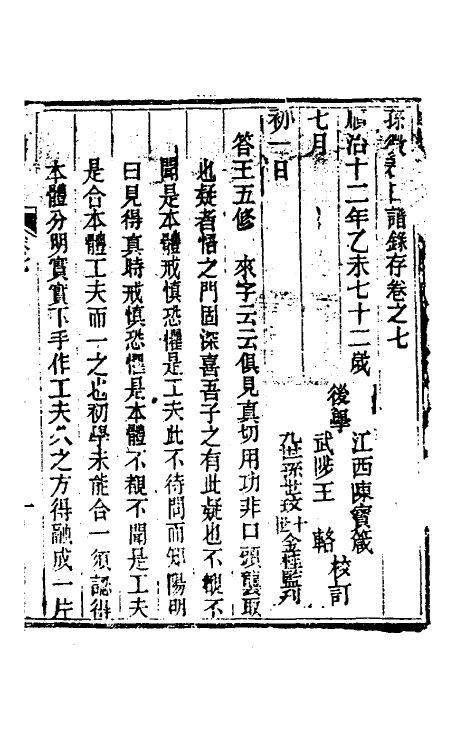 孫徵君日譜錄存卷之七
順治十二年乙未七十二歲
後學
江西陳寶箴
武陟王　輅
校訂
九世孫世玟
金桂監刋
七月
初一日
答王五修　來字云云俱見真切用功非口頭襲取
也疑者悟之門固深喜吾子之有此疑也不覩不
聞是本體戒慎恐懼是工夫此不待問而知陽明
曰見得真時戒慎恐懼是本體不覩不聞是工夫
是合本體工夫而一之也初學未能合一須認得
本體分明實實下手作工夫久之方得融成一片